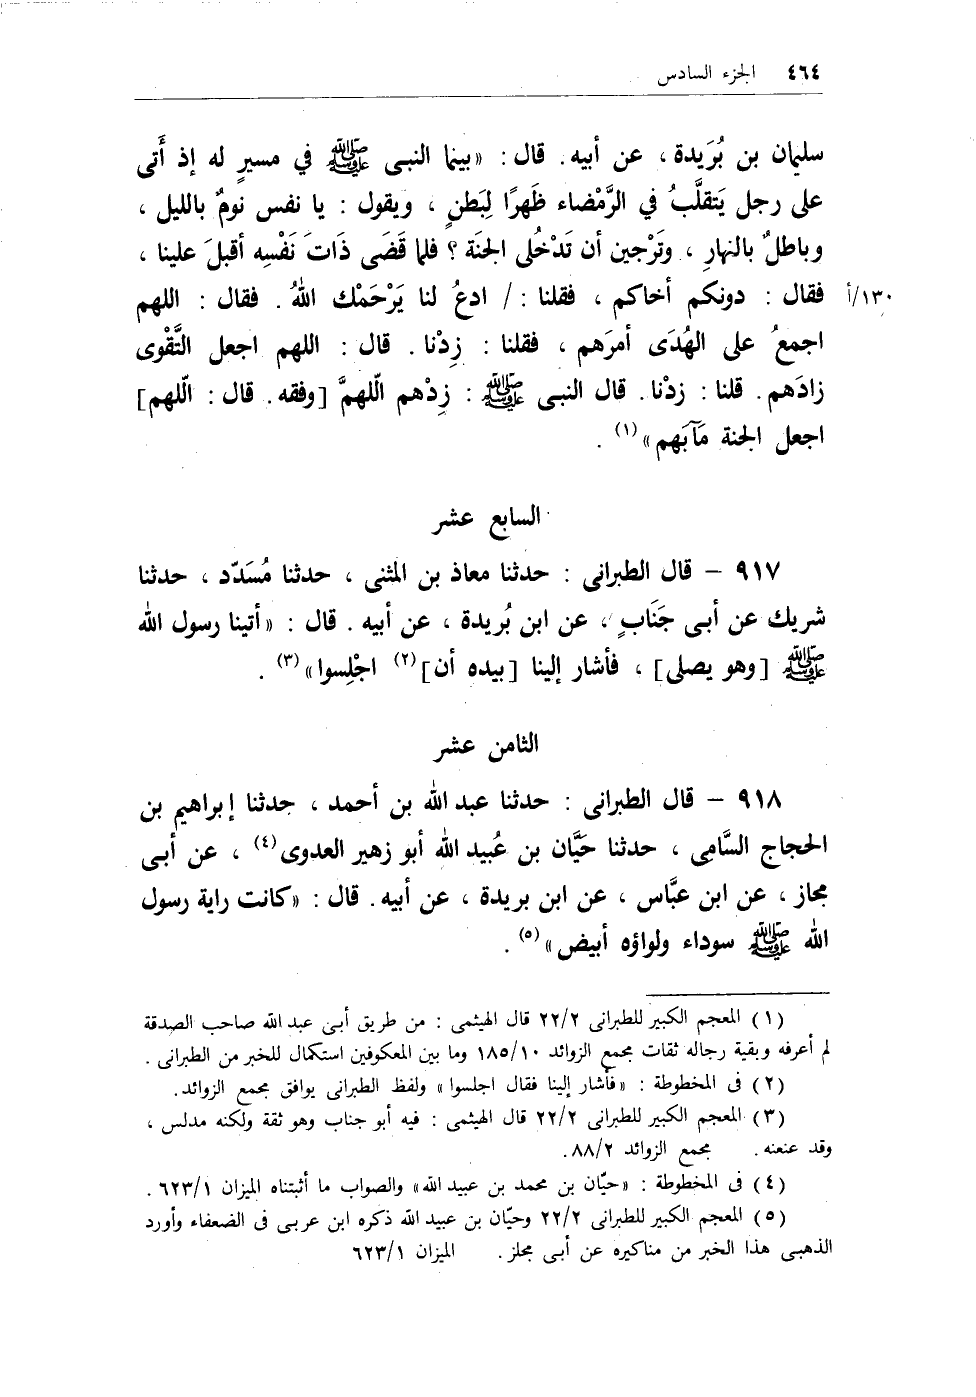 ٤٦٤ الجزء السادس
سليمان بن بُرَيدة ، عن أبيه . قال : «بينما النبى ﷺ في مسيرٍ له إذ أَتى
على رجل يَتقلَّبُ في الرَّمْضاء ظَهرًا لِبَطنٍ ، ويقول : يا نفس نومٌ بالليل ،
وباطلٌ بالنهارِ ، وتَرْجين أن تَدْخُلى الجنَة ؟ فلما قَضَى ذَاتَ نَفْسِه أقبلَ علينا ،
فقال : دونكم أخاكم ، فقلنا : / ادعُ لنا يَرْحَمْك اللهُ . فقال : اللهم ١٣٠/أ
اجمعُ على الهُدَى أمرَهم ، فقلنا : زِدْنا . قال : اللهم اجعل التَّقْوى
زادَهم . قلنا : زدْنا . قال النبى ﷺ : زِدْهم اللهمَّ [وفقه . قال : اللهم]
اجعل الجنة مَآبَهم» (١) .
السابع عشر
٩١٧ – قال الطبرانى : حدثنا معاذ بن المثنى ، حدثنا مُسَدّد ، حدثنا
شريك عن أبى جَنَابٍ ، عن ابن بُريدة ، عن أبيه . قال : «أتينا رسول الله
ﷺ [وهو يصلى] ، فأشار إلينا [بيده أن] (٢) اجْلِسوا» (٣) .
الثامن عشر
٩١٨ – قال الطبرانى : حدثنا عبد الله بن أحمد ، حدثنا إبراهيم بن
الحجاج السَّامِى ، حدثنا حَيَّان بن عُبيد الله أبو زهير العدوى (٤) ، عن أبى
مجاز ، عن ابن عبَّاس ، عن ابن بريدة ، عن أبيه . قال : «كانت راية رسول
الله ﷺ سوداء ولواؤه أبيض» (٥) .
(١) المعجم الكبير للطبرانى ٢٢/٢ قال الهيثمى : من طريق أبى عبد الله صاحب الصدقة
لم أعرفه وبقية رجاله ثقات مجمع الزوائد ١٨٥/١٠ وما بين المعكوفين استكمال للخبر من الطبرانى .
(٢) فى المخطوطة : «فأشار إلينا فقال اجلسوا» ولفظ الطبرانى يوافق مجمع الزوائد .
(٣) المعجم الكبير للطبرانى ٢٢/٢ قال الهيثمى : فيه أبو جناب وهو ثقة ولكنه مدلس ،
وقد عنعنه . مجمع الزوائد ٨٨/٢ .
(٤) فى المخطوطة : «حيّان بن محمد بن عبيد الله» والصواب ما أثبتناه الميزان ٦٢٣/١ .
(٥) المعجم الكبير للطبرانى ٢٢/٢ وحيّان بن عبيد الله ذكره ابن عربى فى الضعفاء وأورد
الذهبى هذا الخبر من مناكيره عن أبى مجلز . الميزان ٦٢٣/١